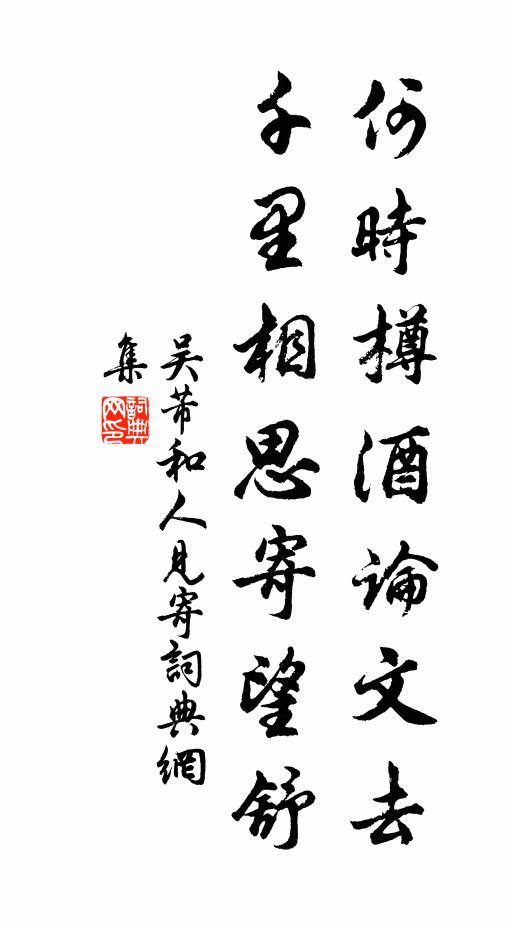 何時樽酒論文去
千里相思寄望舒
吴芾和人見寄詞典網
集
詞典
网印